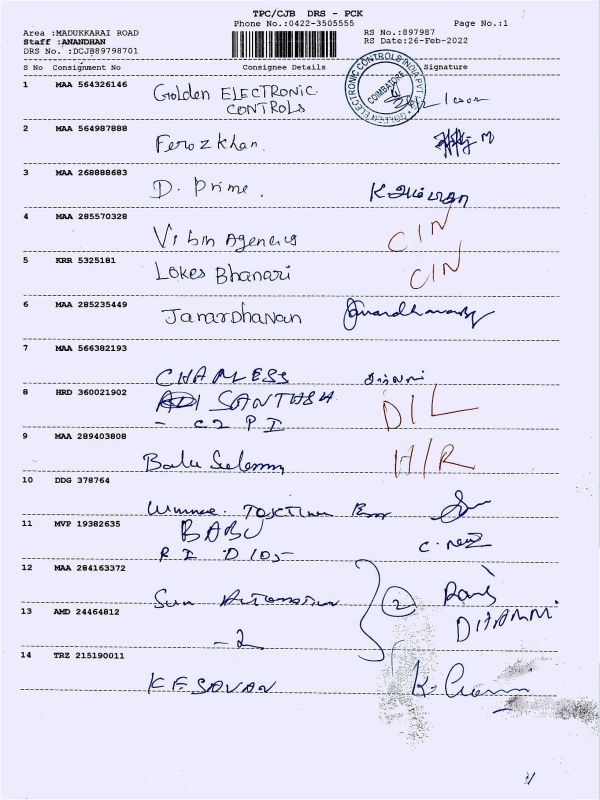 TPC/CJB DRS - PCK
Phone No.:0422-3505555
Page No.:1
Area :MADUKKARAI ROAD
RS No.:897987
Staff :ANANDHAN
RS Date:26-Feb-2022
DRS No. :DCJB89798701
S No Consignment No Consignee Details Signature
ELECTRONIC CONTROLS INDIA PVT
COIMBATORE
1 MAA 564326146 Golden ELECTRONIC
CONTROLS
2 MAA 564987888
Feroz khan.
3 MAA 268888683
D. Prime.
4 MAA 285570328
Vibin Agencies C/N
5 KRR 5325181
Lokes Bhanari C/N
6 MAA 285235449
Janardhanan
7 MAA 566382193
CHARLESS
8 HRD 360021902 SANTHSH D/L
- C2 P I
9 MAA 289403808 H/R
Balu
10 DDG 378764
11 MVP 19382635 BABU
R I D 105-
12 MAA 284163372
Sun Automation 2
13 AMD 24464812
- 2
14 TRZ 215190011
K F. SAVAN